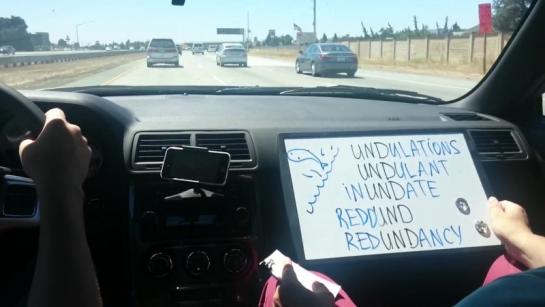 UNDULATIONS
UNDULANT
iNUNDATE
REDOUND
REDUNDANCY